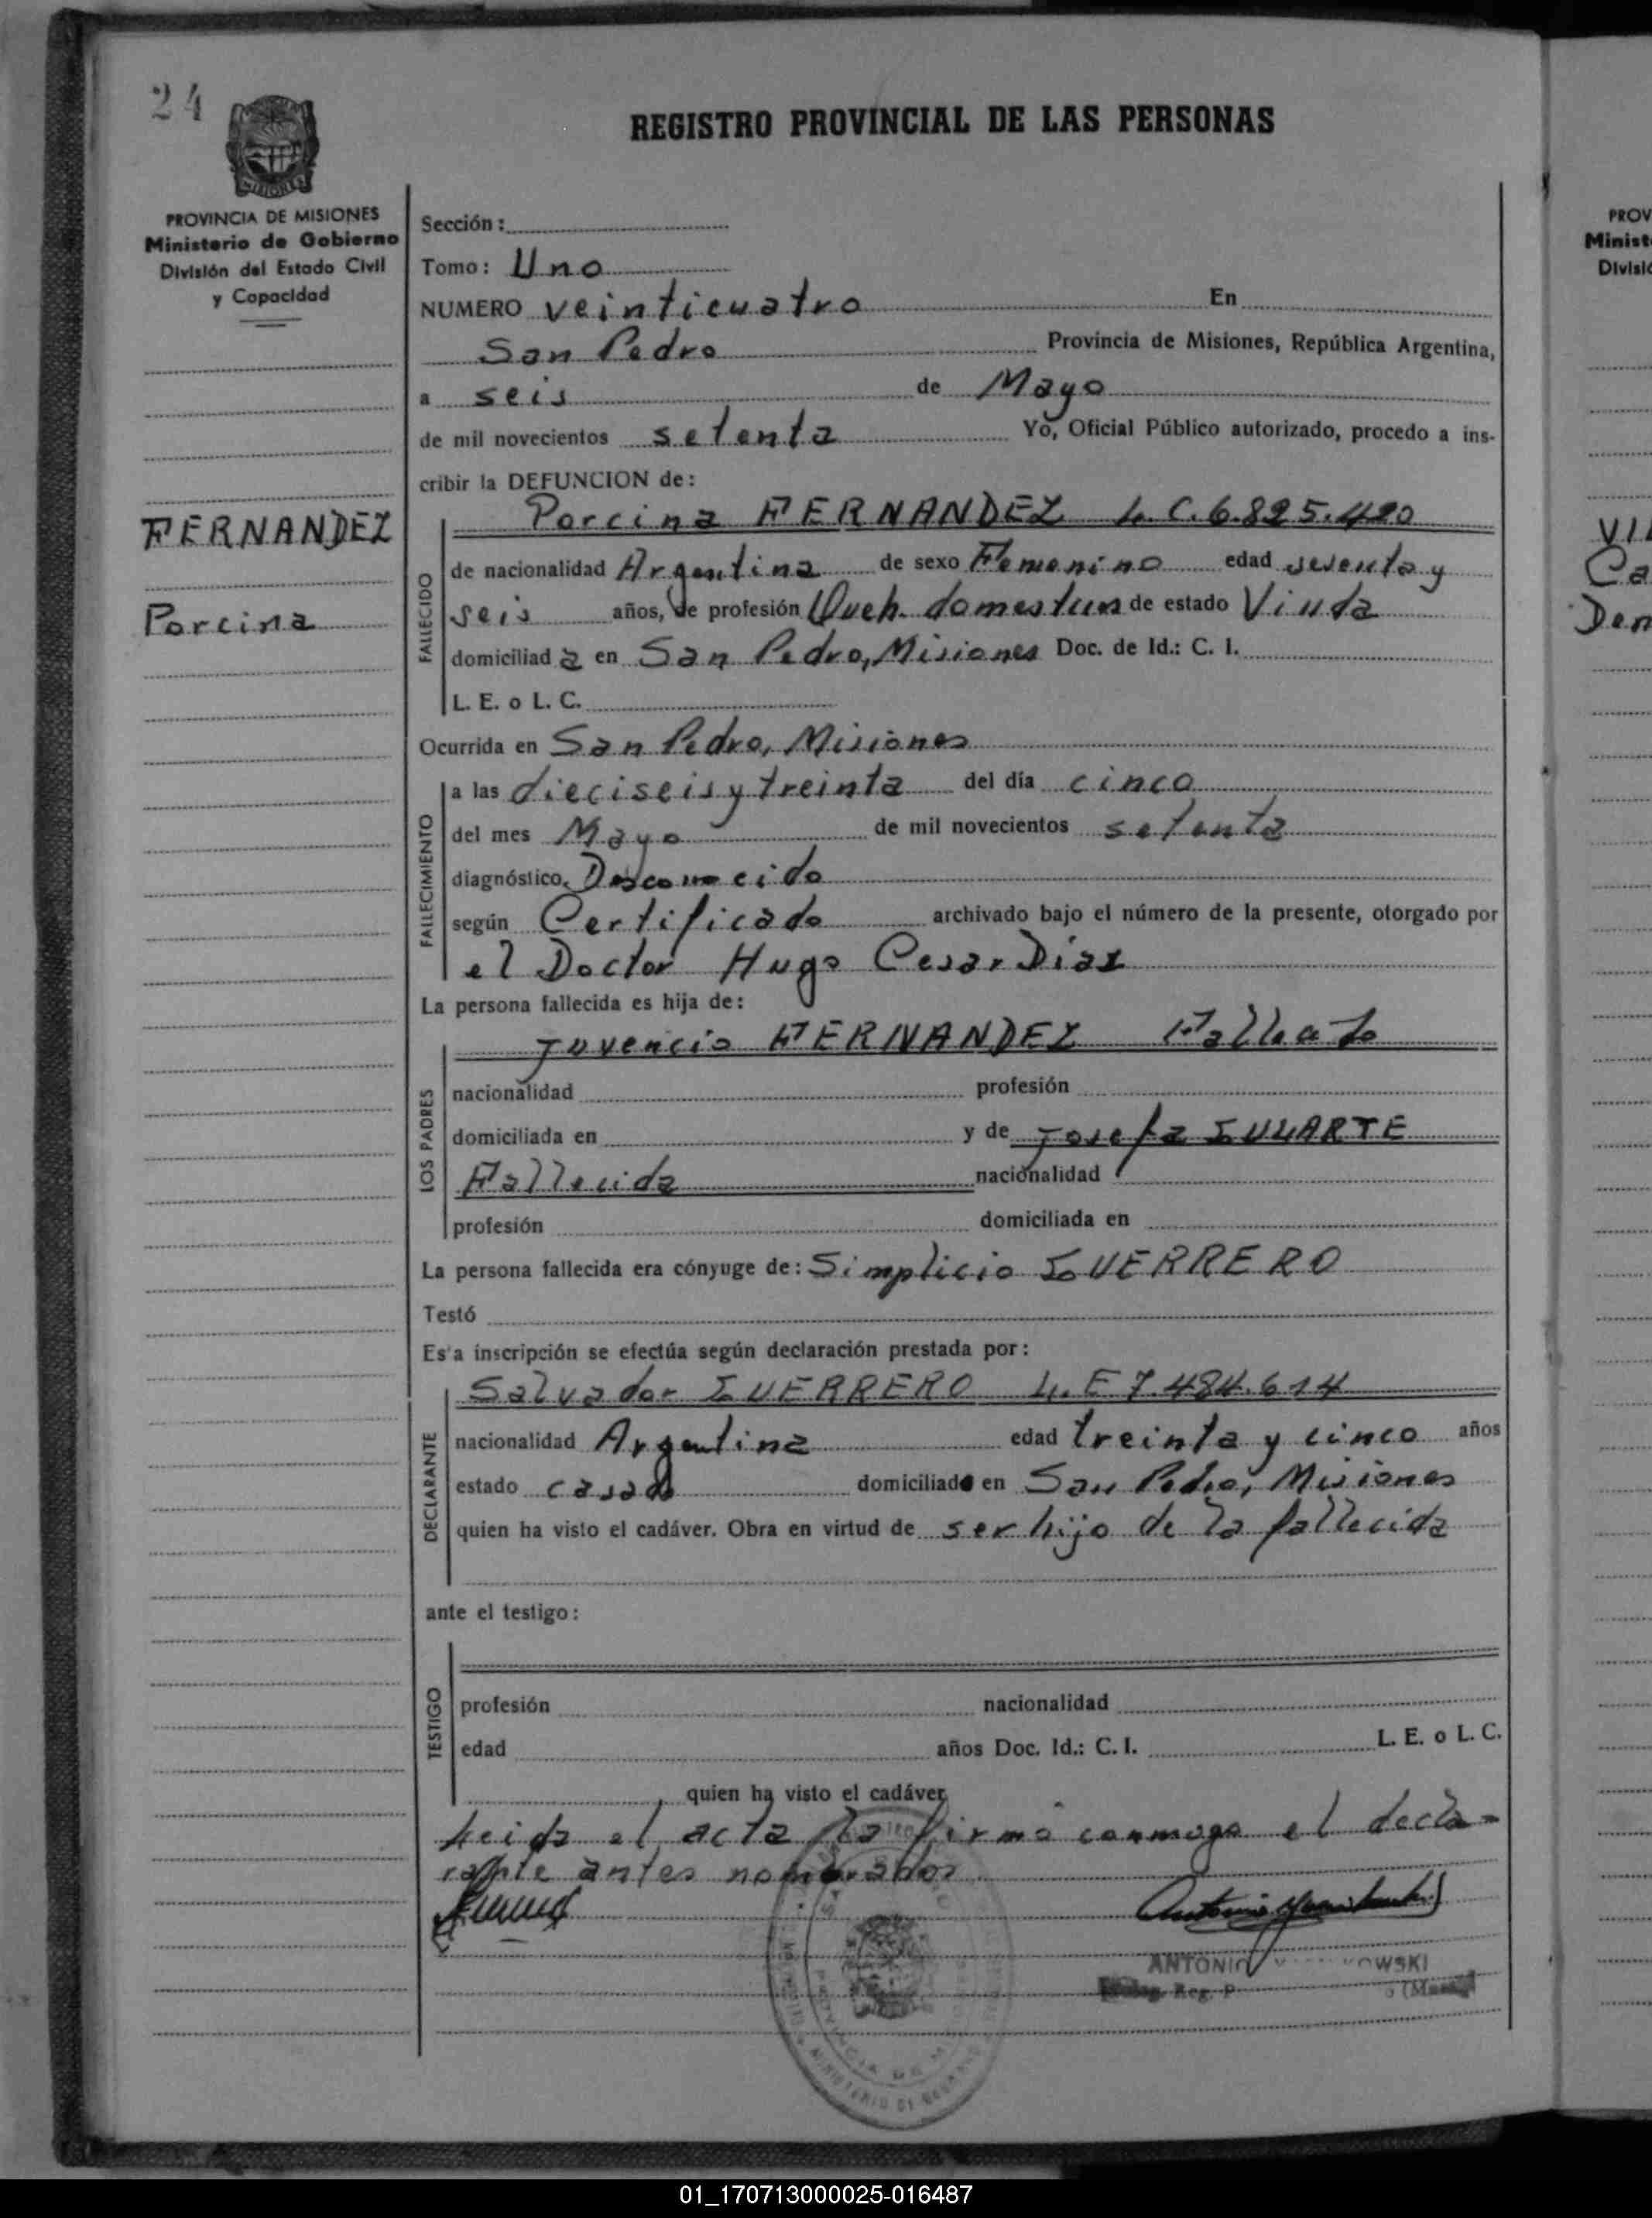 24
REGISTRO PROVINCIAL DE LAS PERSONAS
MISIONES
PROVINCIA DE MISIONES
Ministerio de Gobierno
División del Estado Civil
y Capacidad
FERNANDEZ
Porcina
Sección:
Tomo: Uno
NUMERO veinticuatro En
San Pedro Provincia de Misiones, República Argentina,
a seis de Mayo
de mil novecientos setenta Yo, Oficial Público autorizado, procedo a ins-
cribir la DEFUNCION de:
Porcina FERNANDEZ L.C. 6.825.420
FALLECIDO
de nacionalidad Argentina de sexo Femenino edad sesenta y
seis años, de profesión Queh. domesticos de estado Viuda
domiciliad a en San Pedro, Misiones Doc. de Id.: C. I.
L. E. o L. C.
Ocurrida en San Pedro, Misiones
FALLECIMIENTO
a las dieciseis y treinta del día cinco
del mes Mayo de mil novecientos setenta
diagnóstico. Desconocido
según Certificado archivado bajo el número de la presente, otorgado por
el Doctor Hugo Cesar Diaz
La persona fallecida es hija de:
LOS PADRES
Juvencio FERNANDEZ Fallecido
nacionalidad profesión
domiciliada en y de Josefa DUARTE
Fallecida nacionalidad
profesión domiciliada en
La persona fallecida era cónyuge de: Simplicio GUERRERO
Testó
Es'a inscripción se efectúa según declaración prestada por:
DECLARANTE
Salvador GUERRERO L.E 7.484.614
nacionalidad Argentina edad treinta y cinco años
estado casado domiciliado en San Pedro, Misiones
quien ha visto el cadáver. Obra en virtud de ser hijo de la fallecida
ante el testigo:
TESTIGO
profesión nacionalidad
edad años Doc. Id.: C. I. L. E. o L. C.
quien ha visto el cadáver
Leida el acta la firma conmogo el decla-
rante antes nombrados
ANTONIO OWSKI
Reg. P
PROV
Minist
Divisi
VIL
Ca
Den
01_170713000025-016487